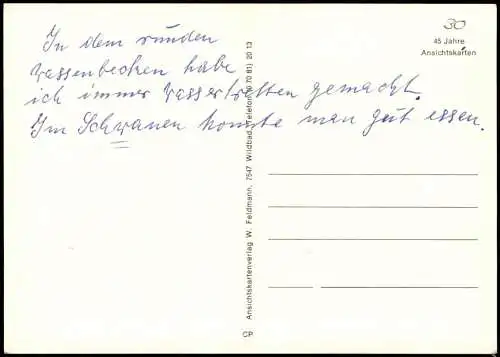 30
45 Jahre
Ansichtskarten
In dem runden
Wassenbecken habe
ich immer Wassertretten gemacht.
Im Schwanen konnte man gut essen.
Ansichtskartenverlag W. Feldmann, 7547 Wildbad, Telefon (0 70 81) 20 13
CP